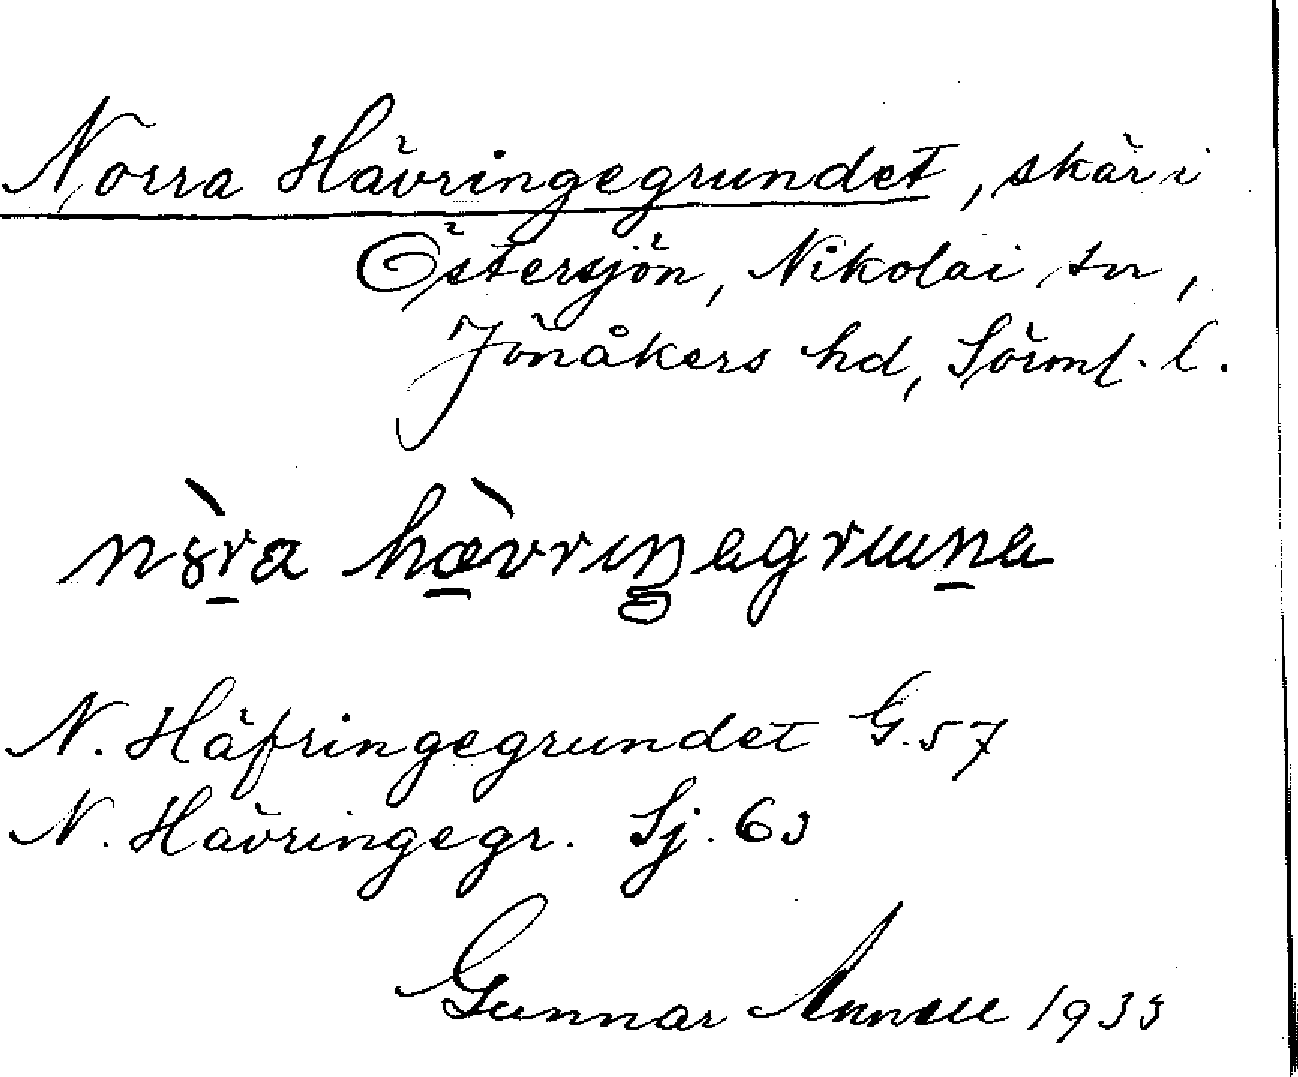 Norra Hävringegrundet, skär i
Östersjön, Nikolai sn,
Jönåkers hd, Sörml. l.
N. Häfringegrundet G. 57
N. Hävringegr. Sj. 63
Gunnar 1933